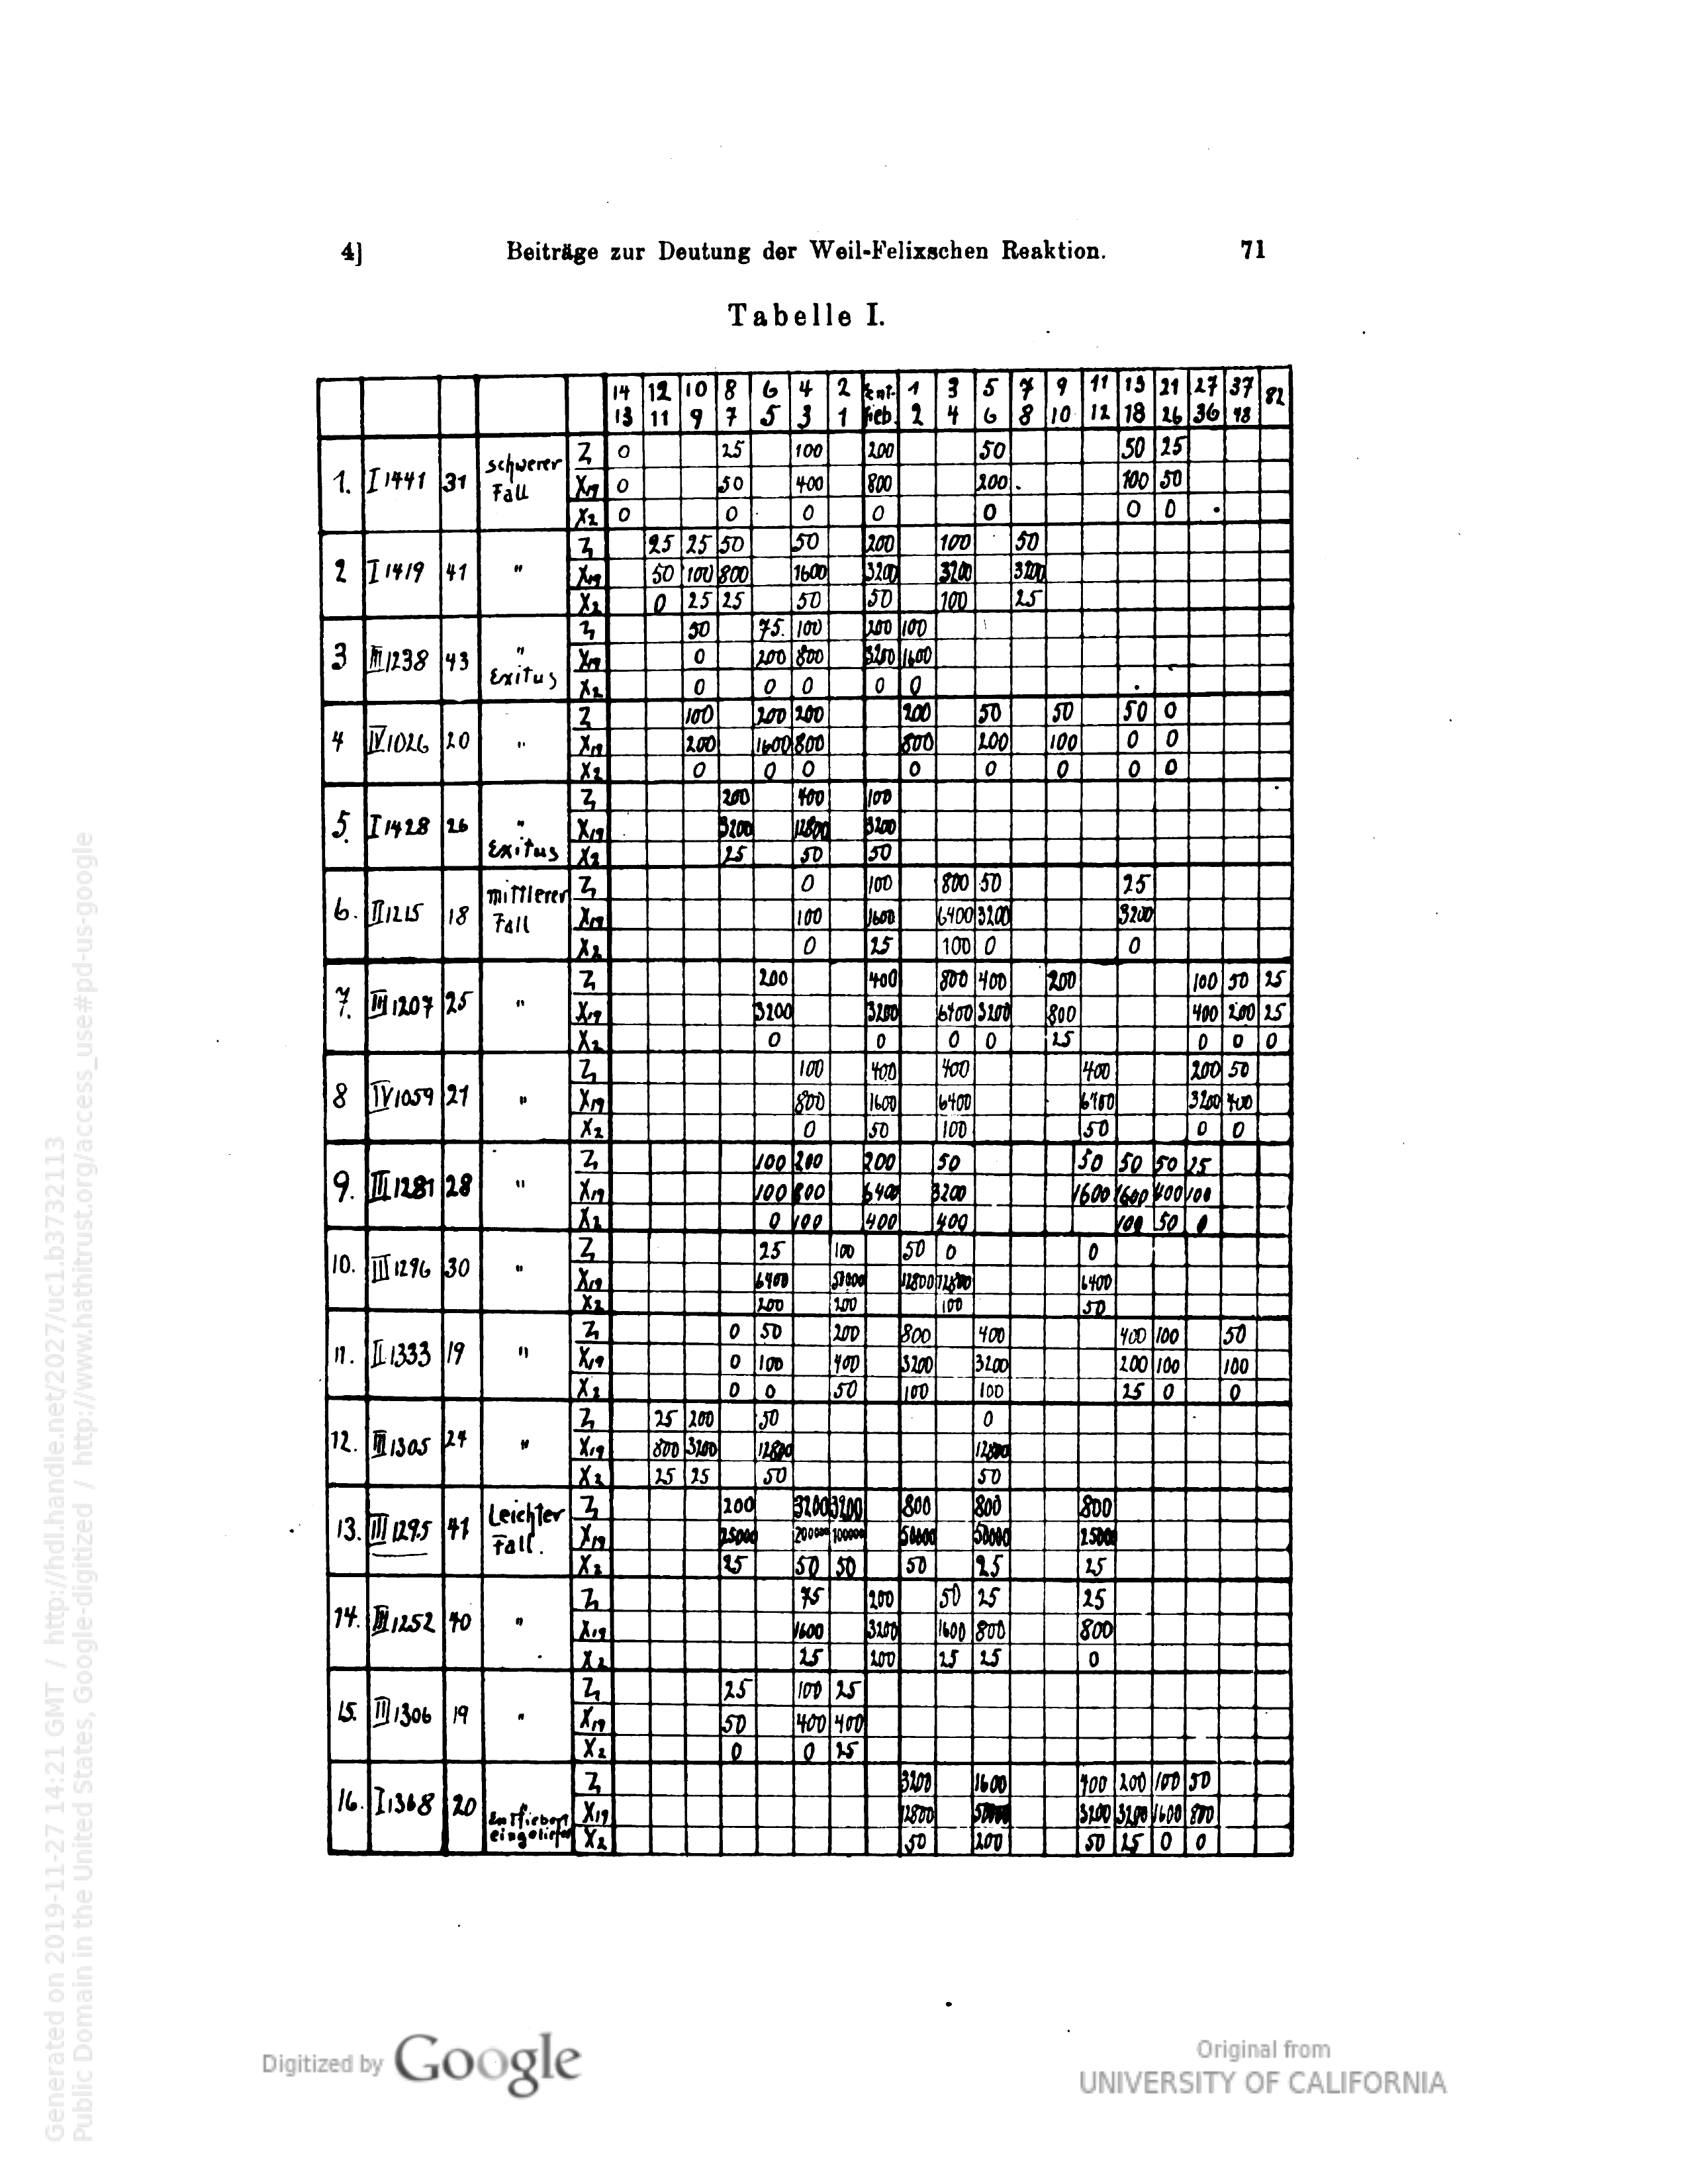 4] Beiträge zur Deutung der Weil-Felixschen Reaktion. 71
Tabelle I.
14 12 10 8 6 4 2 Ent- 1 3 5 7 9 11 13 21 27 37 82
13 11 9 7 5 3 1 fieb. 2 4 6 8 10 12 18 26 36 48
1. I 1441 31 schwerer Fall
Z 0 25 100 200 50 50 25
X19 0 50 400 800 200 100 50
X2 0 0 0 0 0 0 0
2 I 1419 41 "
Z 25 25 50 50 200 100 50
X19 50 100 800 1600 3200 3200 3200
X2 0 25 25 50 50 100 25
3 III 1238 43 " Exitus
Z 50 75 100 200 100
X19 0 200 800 3200 1600
X2 0 0 0 0 0
4 IV 1026 20 "
Z 100 200 200 200 50 50 50 0
X19 200 1600 800 800 200 100 0 0
X2 0 0 0 0 0 0 0 0
5. I 1428 26 " Exitus
Z 200 400 100
X19 3200 12800 3200
X2 25 50 50
6. II 1215 18 mittlerer Fall
Z 0 100 800 50 25
X19 100 1600 6400 3200 3200
X2 0 25 100 0 0
7. III 1207 25 "
Z 200 400 800 400 200 100 50 25
X19 3200 3200 6400 3200 800 400 200 25
X2 0 0 0 0 25 0 0 0
8 IV 1059 21 "
Z 100 400 400 400 200 50
X19 800 1600 6400 6400 3200 400
X2 0 50 100 50 0 0
9. III 1281 28 "
Z 100 200 200 50 50 50 50 25
X19 100 800 6400 3200 1600 1600 400 100
X2 0 100 400 400 100 50 0
10. III 1296 30 "
Z 25 100 50 0 0
X19 6400 12800 12800 6400
X2 200 200 100 50
11. II 1333 19 "
Z 0 50 200 800 400 400 100 50
X19 0 100 400 3200 3200 200 100 100
X2 0 0 50 100 100 25 0 0
12. III 1305 24 "
Z 25 200 50 0
X19 800 3200 12800 12800
X2 25 25 50 50
13. III 1295 41 Leichter Fall.
Z 200 3200 3200 800 800 800
X19 25000 200000 100000 50000 50000 25000
X2 25 50 50 50 25 25
14. III 1252 40 "
Z 75 200 50 25 25
X19 1600 3200 1600 800 800
X2 25 200 25 25 0
15. III 1306 19 "
Z 25 100 25
X19 50 400 400
X2 0 0 25
16. I 1368 20 Entfiebert eingeliefert
Z 3200 1600 400 200 100 50
X19 12800 3200 3200 1600 800
X2 50 200 50 25 0 0
Generated on 2019-11-27 14:21 GMT / http://hdl.handle.net/2027/uc1.b3732113
Public Domain in the United States, Google-digitized / http://www.hathitrust.org/access_use#pd-us-google
Digitized by Google
Original from
UNIVERSITY OF CALIFORNIA